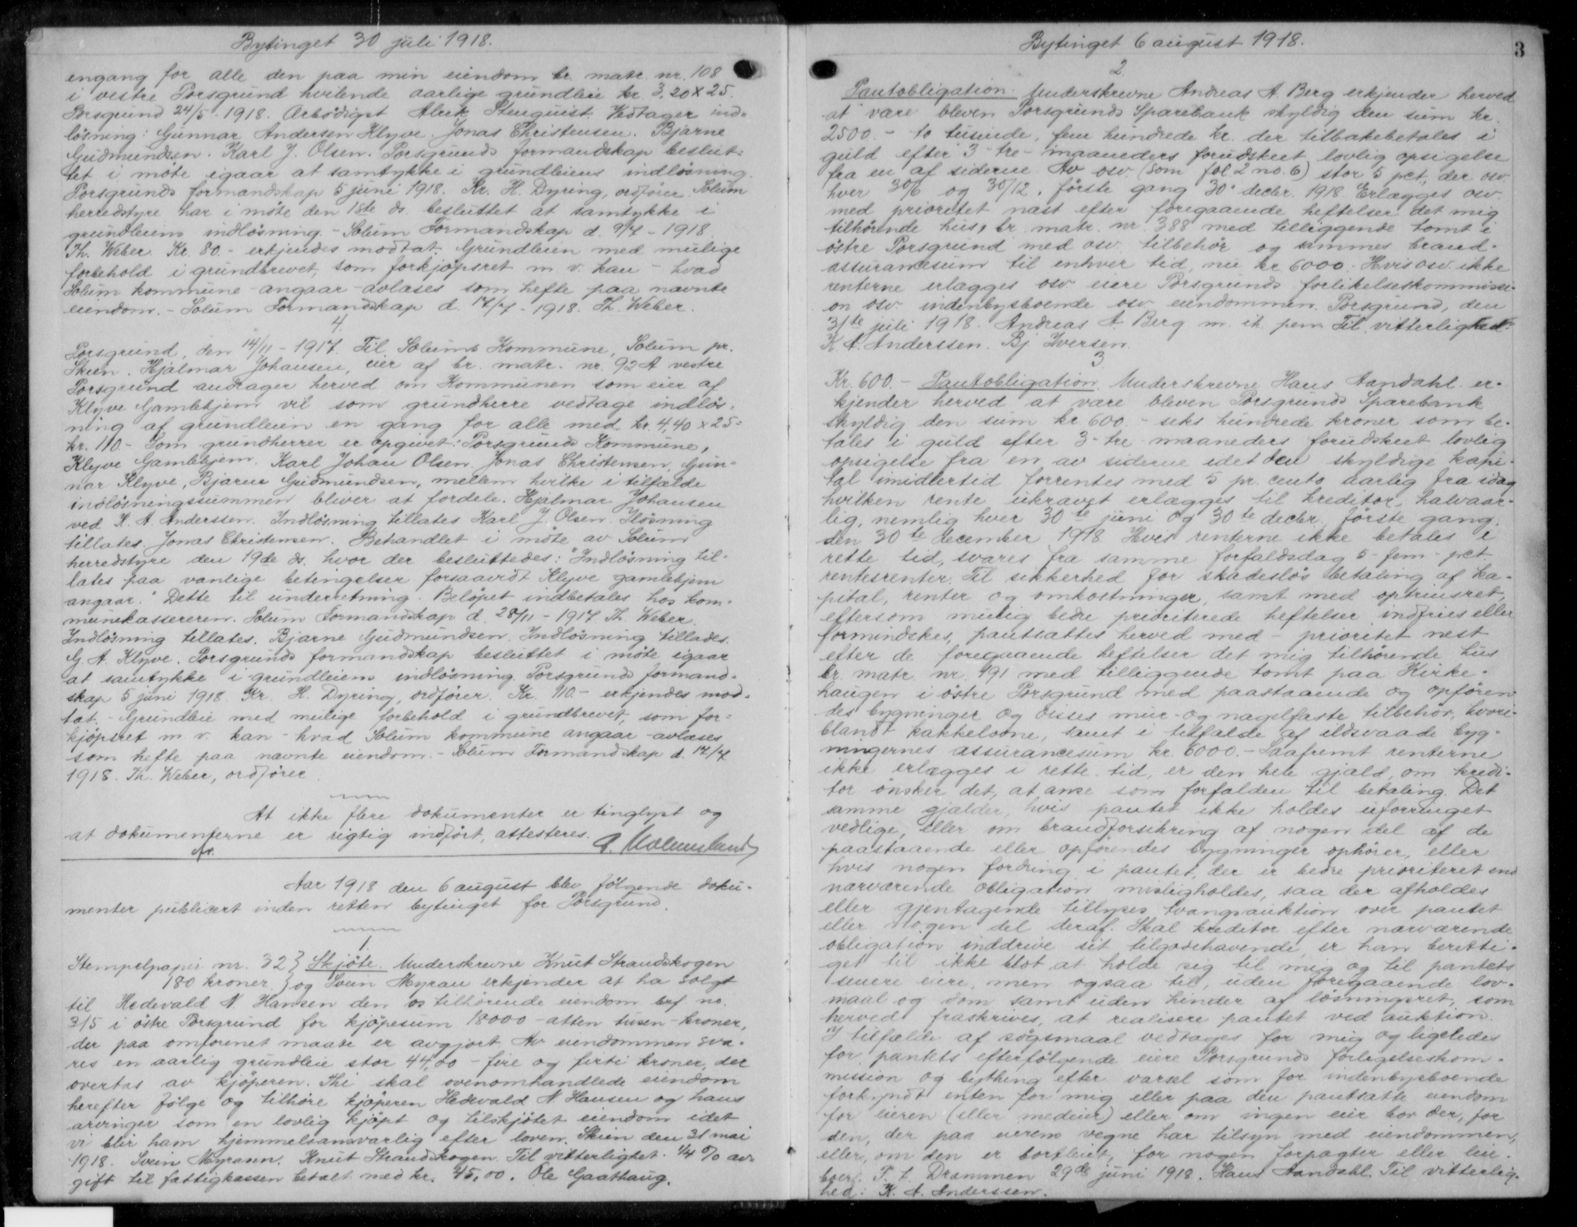 Bytinget 30 juli 1918.
engang for alle den paa min eiendom br. matr. nr. 108
i vestre Porsgrund hvilende aarlige grundleie kr. 3,20 x 25.
Porsgrund 24/5 1918. Ærbødigst Alrik Stenquist. Vedtager ind-
løsning: Gunnar Andersen Klyve. Jonas Christensen. Bjarne
Gudmundsen. Karl J. Olsen. Porsgrunds formandskap beslut-
tet i møte igaar at samtykke i grundleiens indløsning.
Porsgrunds formandskap 5 juni 1918. Kr. H. Dyring, ordfører. Solum
herredstyre har i møte den 18de ds. besluttet at samtykke i
grundleiens indløsning. - Solum Formandskap d. 9/4 - 1918
Th. Weber. Kr. 80.- erkjendes modtat. Grundleien med mulige
forbehold i grundbrevet, som forkjøpsret m. v. kan - hvad
Solum kommune angaar - avlæses som hefte paa nævnte
eiendom. - Solum Formandskap d. 14/7 - 1918. Th. Weber.
4.
Porsgrund, den 14/11 - 1917. Til Solums Kommune, Solum pr.
Skien. Hjalmar Johansen, eier af br. matr. nr. 92 A vestre
Porsgrund andrager herved om Kommunen som eier af
Klyve Gamlehjem vil som grundherre vedtage indløs-
ning af grundleien en gang for alle med kr. 4,40 x 25 =
kr. 110.- Som grundherrer er opgivet: Porsgrunds Kommune,
Klyve Gamlehjem. Karl Johan Olsen. Jonas Christensen. Gun-
nar Klyve, Bjarne Gudmundsen, mellem hvilke i tilfælde
indløsningssummen bliver at fordele. Hjalmar Johansen
ved K. A. Anderssen. Indløsning tillates Karl J. Olsen. Iløsning
tillates Jonas Christensen. Behandlet i møte av Solum
herredstyre den 19de ds. hvor der besluttedes: "Indløsning til-
lates paa vanlige betingelser forsaavidt Klyve gamlehjem
angaar." Dette til underretning. Beløpet indbetales hos kom-
munekassereren. Solum Formandskap d. 28/11 - 1917 Th. Weber.
Indløsning tillates. Bjarne Gudmundsen. Indløsning tilledes.
G. A. Klyve. Porsgrunds formandskap besluttet i møte igaar
at samtykke i grundleiens indløsning. Porsgrunds formand-
skap 5 juni 1918. Kr. H. Dyring, ordfører. Kr. 110.- erkjendes mod-
tat. - Grundleie med mulige forbehold i grundbrevet, som for-
kjøpsret m v. kan - hvad Solum kommune angaar - avlæses
som hefte paa nævnte eiendom. - Solum Formandskap d. 14/7
1918. Th. Weber, ordfører.
At ikke flere dokumenter er tinglyst og
at dokumenterne er rigtig indført, attesteres.
Aar 1918 den 6 august blev følgende doku-
menter publicert inden retten bytinget for Porsgrund.
1.
Stempelpapir nr. 32 } Skjøte. Underskrevne Knut Strandskogen
180 kroner } og Svein Myran erkjender at ha solgt
til Hedevald N. Hansen den os tilhørende eiendom brf no.
315 i østre Porsgrund for kjøpesum 18000 - atten tusen - kroner,
der paa omforenet maate er avgjort. Av eiendommen sva-
res en aarlig grundleie stor 44,00 - fire og firti kroner, der
overtas av kjøperen. Thi skal ovenomhandlede eiendom
herefter følge og tilhøre kjøperen Hedevald N Hansen og hans
arvinger som en lovlig kjøpt og tilskjøtet eiendom idet
vi blir ham hjemmelsansvarlig efter loven. Skien den 31 mai
1918. Svein Myrann. Knut Strandskogen. Til vitterlighet. 1/4 % av-
gift til fattigkassen betalt med kr. 45,00. Ole Gaathaug.
Bytinget 6 august 1918.
3
2.
Pantobligation. Underskrevne Andreas A. Berg erkjender herved
at være bleven Porsgrunds Sparebank skyldig den sum kr.
2500.- to tusinde, fem hundrede kr. der tilbakebetales i
guld efter 3 - tre - maaneders forudskeet lovlig opsigelse
fra en af siderne. Av osv. (som fol. 2 no. 6) stor 5 pct, der osv
hver 30/6 og 30/12, første gang 30. decbr. 1918. Erlægges osv.
med prioritet næst efter foregaaende heftelser det mig
tilhørende hus, br. matr. nr. 388 med tilliggende tomt i
østre Porsgrund med osv. tilbehør og sammes brand-
assurancesum til enhver tid, nu kr 6000. Hvis osv. ikke
renterne erlægges osv eiere Porsgrunds forlikelseskommissi-
on osv indenbysboende osv. eiendommen. Porsgrund, den
31te juli 1918. Andreas A. Berg m. ih. pen. Til vitterlighed:
K A. Anderssen. Bj Iversen.
3
Kr. 600.- Pantobligation. Underskrevne Hans Aandahl er-
kjender herved at være bleven Porsgrunds Sparebank
skyldig den sum kr 600 - seks hundrede kroner som be-
tales i guld efter 3 - tre maaneders forudskeet lovlig
opsigelse fra en av siderne idet den skyldige kapi-
tal imidlertid forrentes med 5 pr. cento aarlig fra idag
hvilken rente ukrævet erlægges til kreditor halvaar-
lig, nemlig hver 30te juni og 30te decbr, første gang
den 30te december 1918. Hvis renterne ikke betales i
rette tid, svares fra samme forfaldsdag 5 - fem - pct
rentesrenter. Til sikkerhed for skadesløs betaling af ka-
pital, renter og omkostninger, samt med opriusret,
eftersom mulig bedre prioriterede heftelser indfries eller
formindskes, pantsættes herved med - prioritet nest
efter de foregaaende heftelser det mig tilhørende hus
br. matr. nr. 191 med tilliggende tomt paa Kirke-
haugen i østre Porsgrund med paastaaende og opføren-
des bygninger og disses mur- og nagelfaste tilbehør, hvori-
blandt kakkelovne, samt i tilfælde af ildsvaade byg-
ningernes assurancesum kr. 6000.- Saafremt renterne
ikke erlægges i rette tid, er den hele gjæld, om kredi-
tor ønsker det, at anse som forfalden til betaling. Det
samme gjælder, hvis pantet ikke holdes uforringet
vedlige, eller om brandforsikring af nogen del af de
paastaaende eller opførendes bygninger ophører, eller
hvis nogen fordring i pantet, der er bedre prioriteret end
nærværende obligation misligholdes, saa der afholdes
eller gjentagende tillyses tvangsauktion over pantet
eller nogen del deraf. Skal kreditor efter nærværende
obligation inddrive sit tilgodehavende, er han beretti-
get til ikke blot at holde sig til mig og til pantets
senere eiere, men ogsaa til, uden foregaaende lov-
maal og dom samt uden hinder af løsningsret, som
herved fraskrives, at realisere pantet ved auktion.
I tilfælde af søgsmaal vedtages for mig og ligeledes
for pantets efterfølgende eiere Porsgrunds forligelseskom-
mission og bything efter varsel som for indenbysboende
forkyndt enten for mig eller paa den pantsatte eiendom
for eieren (eller medeier) eller om ingen eier bor der, for
den, der paa eierens vegne har tilsyn med eiendommen,
eller, om den er bortleiet, for nogen forpagter eller leie-
boer. P. t. Drammen 29de juni 1918. Hans Aandahl. Til vitterlig-
hed: K. A. Anderssen.